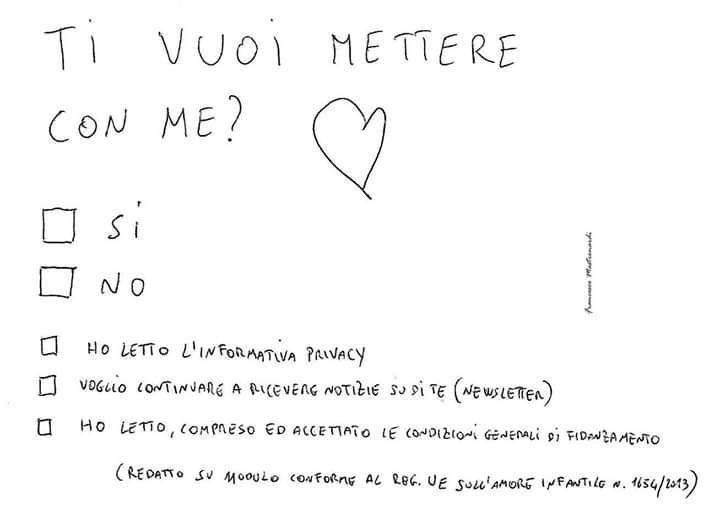 Ti VUOi METTERE
CON ME?
Si
NO
HO LETTO L'INFORMATIVA PRIVACY
VOGLIO CONTINUARE A RICEVERE NOTIZIE SU DI TE (NEWSLETTER)
HO LETTO, COMPRESO ED ACCETTATO LE CONDIZIONI GENERALI Di FIDANZAMENTO
(REDATTO SU MODULO CONFORME AL REG. UE SULL'AMORE INFANTILE N. 1654/2013)
Francesco Mastinardi